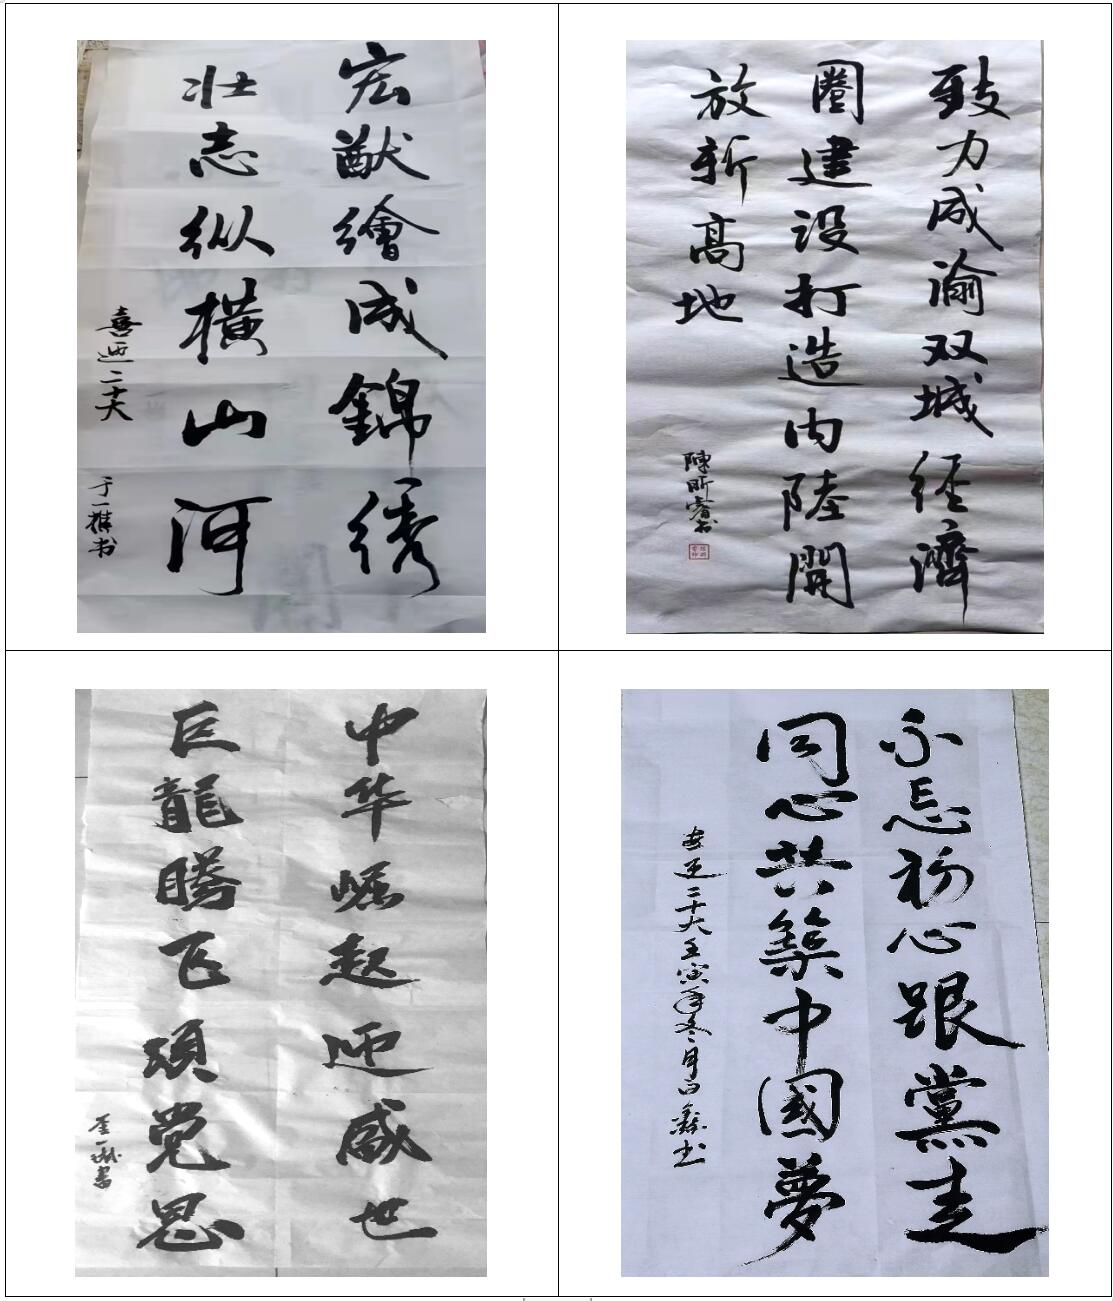 宏猷繪成錦绣
壮志纵橫山河
喜迎二十大
于一雄书
致力成渝双城经濟
圈建设打造内陸開
放新高地
陳昕睿书
中华崛起迎盛世
巨龍腾飞颂党恩
不忘初心跟黨走
同心共築中國夢
喜迎二十大壬寅年冬月白鑫书